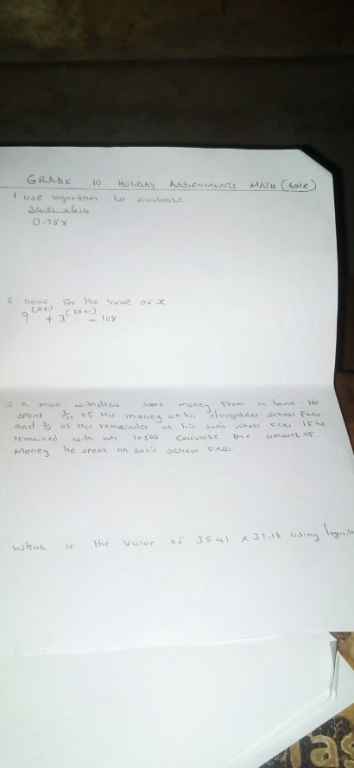 GRADE 10 HOLIDAY ASSIGNMENTS MATH (Core)
1 use logarithm to evaluate
0.758
2. Solve for the value of x
9^(x+1) + 3^(2x+1) = 108
3 A man withdrew some money from a bank. He
spent 3/10 of the money on his daughters school fees
and of the remainder on his son's school fees. If he
remained with 10500. Calculate the amount of
money he spent on son's school fees.
What is the value of 35.41 x 37.16 using
as